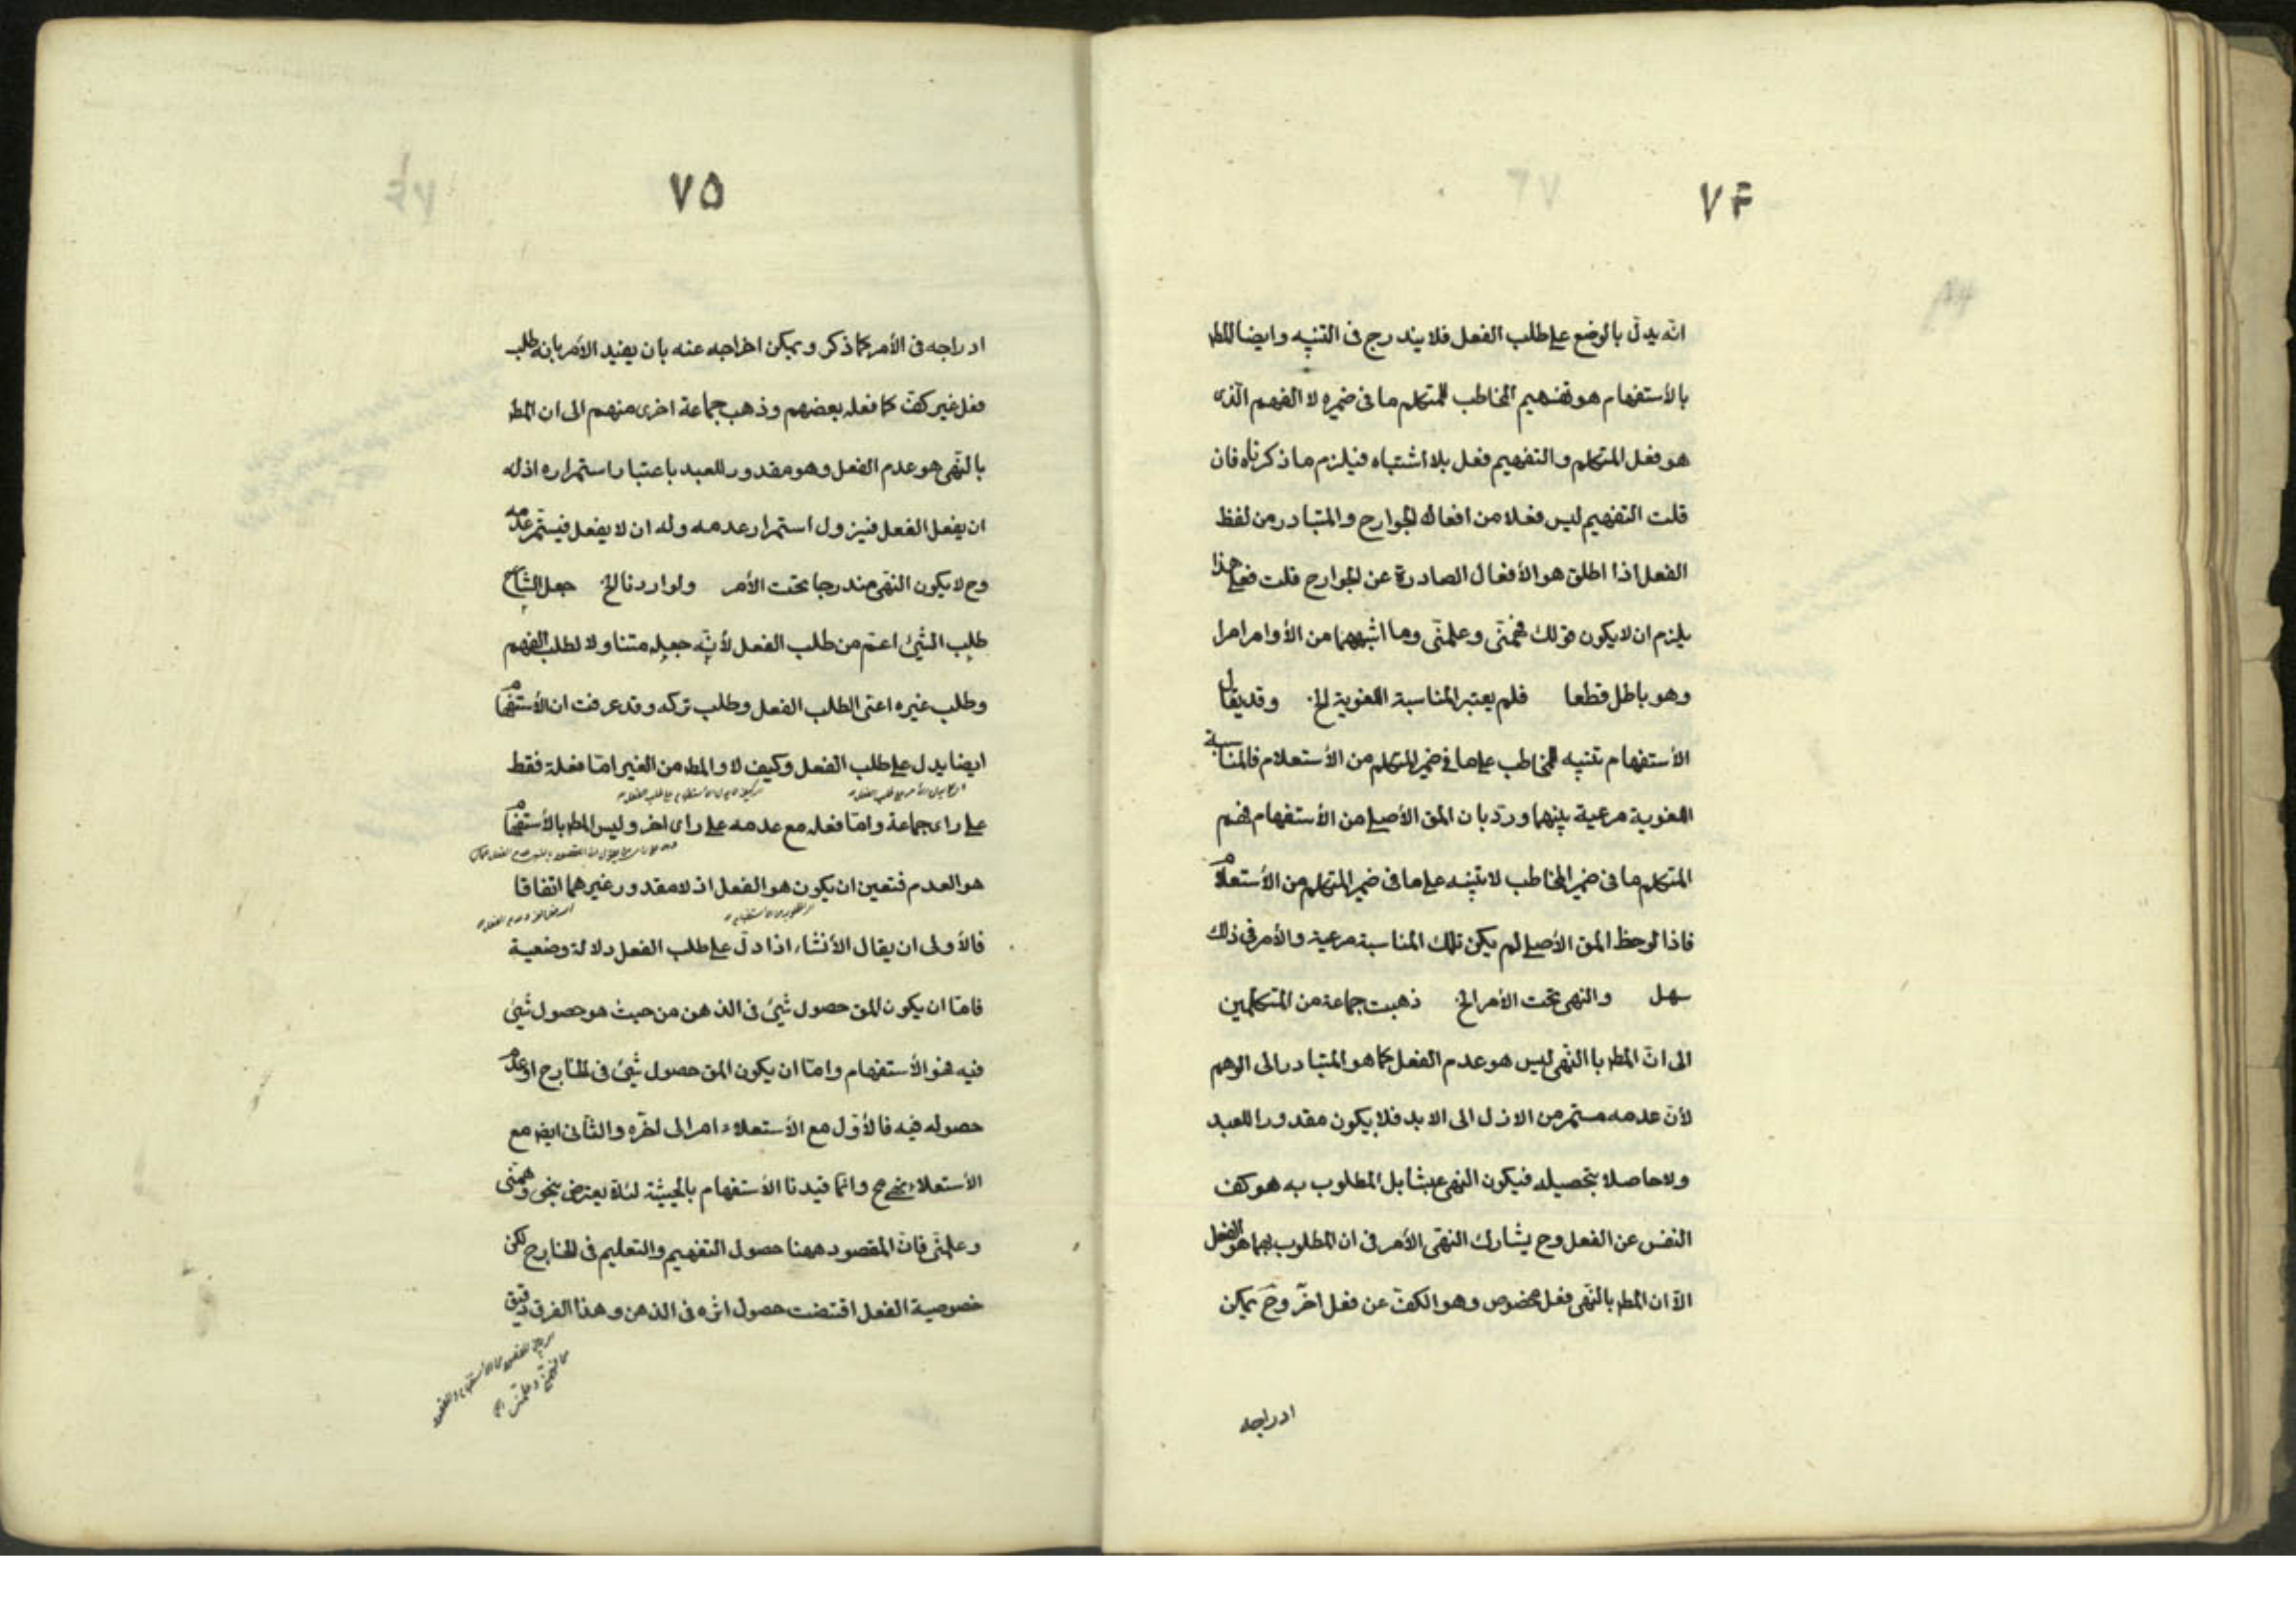 ٧۴
انّه يدلّ بالوضع على طلب الفعل فلا يندرج فى التنبيه وايضا المط
بالأستفهام هو تفهيم المخاطب للمتكلم ما فى ضميره لا الفهم الّذى
هو فعل المتكلم والتفهيم فعل بلا اشتباه فيلزم ما ذكرناه فان
قلت التفهيم ليس فعلا من افعال الجوارح والمتبادر من لفظ
الفعل اذا اطلق هو الأفعال الصادرة عن الجوارح قلت فعلى هذا
يلزم ان لا يكون قولك فهّمنى وعلمنّى وما اشبههما من الأوامر امرا
وهو باطل قطعا فلم يعتبر المناسبة اللغوية الخ وقد يقال
الأستفهام تنبيه المخاطب على ما فى ضمير المتكلم من الأستعلام فالمناسبة
اللغوية مرعية بينهما وردّ بان المق الأصلى من الأستفهام فهم
المتكلم ما فى ضمير المخاطب لا تنبيه على ما فى ضمير المتكلم من الأستعلام
فاذا لوحظ المق الأصلى لم يكن تلك المناسبة مرعية والأمر فى ذلك
سهل والنهى تحت الأمر الخ ذهبت جماعة من المتكلمين
الى انّ المط با النّهى ليس هو عدم الفعل كما هو المتبادر الى الوهم
لأنّ عدمه مستمر من الازل الى الابد فلا يكون مقدورا للعبد
ولا حاصلا بتحصيله فيكون النهى عبثا بل المطلوب به هو كف
النفس عن الفعل وح يشارك النهى الأمر فى ان المطلوب بهما هو الفعل
الّا ان المط بالنّهى فعل مخصوص وهو الكفّ عن فعل اخر وح يمكن
ادراجه
٧۵
ادراجه فى الأمر كما ذكر ويمكن اخراجه عنه بان يقيد الأمر بانه طلب
فعل غير كفّ كما فعله بعضهم وذهب جماعة اخرى منهم الى ان المط
بالنّهى هو عدم الفعل وهو مقدور للعبد باعتبار استمراره اذ له
ان يفعل الفعل فيزول استمرار عدمه وله ان لا يفعل فيستمّر عدمه
وح لا يكون النهى مندرجا تحت الأمر ولو اردنا الخ جعل الشارح
طلب الشيئ اعمّ من طلب الفعل لأنّه جعله متناولا لطلب الفهم
وطلب غيره اعنى الطلب الفعل وطلب تركه وقد عرفت ان الأستفهام
ايضا يدل على طلب الفعل وكيف لا والمط من الغير امّا فعله فقط
على راى جماعة وامّا فعله مع عدمه على راى اخر وليس المط بالأستفهام
هو العدم فتعين ان يكون هو الفعل اذ لا مقدور غيرهما اتفاقا
فالأولى ان يقال الأنشاء اذا دلّ على طلب الفعل دلالة وضعية
فامّا ان يكون المق حصول شيئ فى الذهن من حيث هو حصول شيئ
فيه فهو الأستفهام وامّا ان يكون المق حصول شيئ فى الخارج او عدم
حصوله فيه فالأوّل مع الأستعلاء امر الى اخره والثّانى ايضا مع
الأستعلاء نهى ح وانّما قيدنا الأستفهام بالحيثيّة لئلا يعترض بنحو فهّمنى
وعلمنّى فانّ المقصود ههنا حصول التفهيم والتعليم فى الخارج لكن
خصوصية الفعل اقتضت حصول اثره فى الذهن وهذا الفرق دقيق